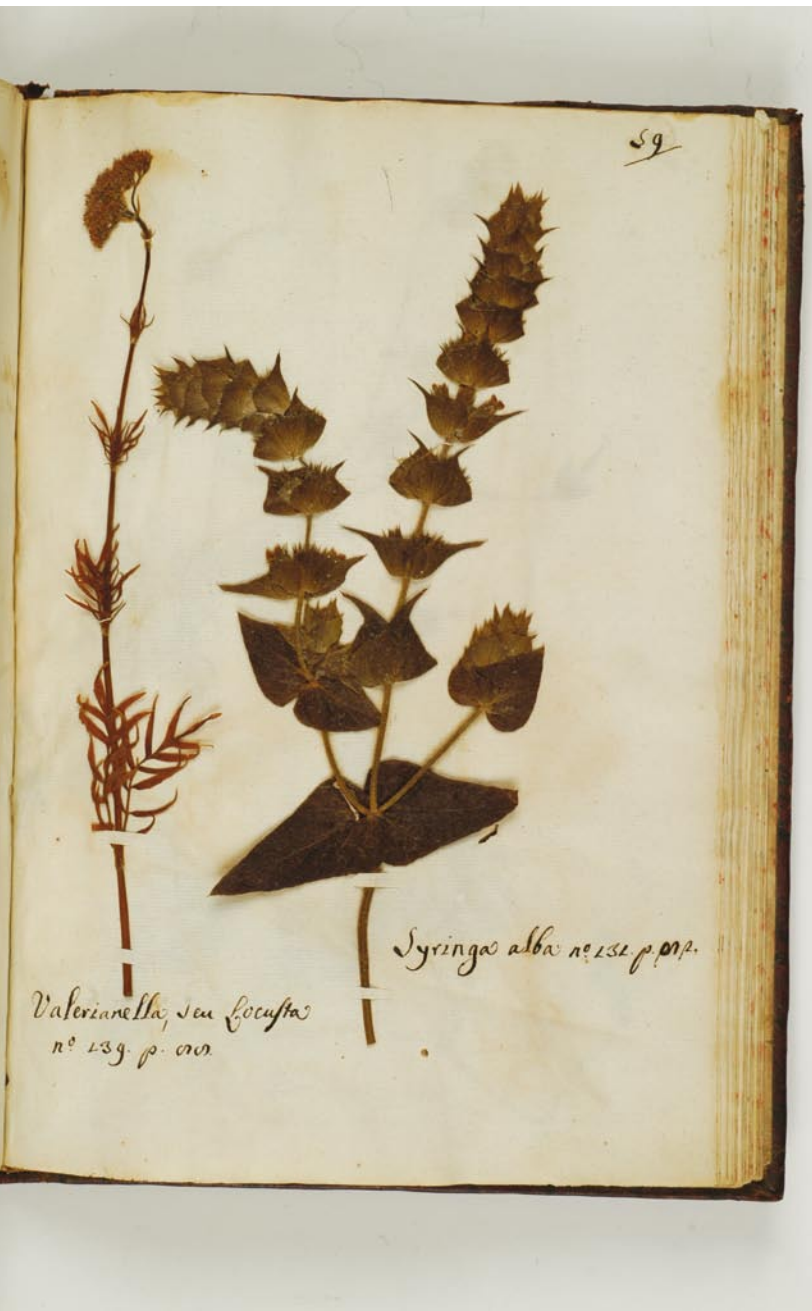 59
Syringa alba nº 131. p.
Valerianella, seu Locusta
nº 139. p.